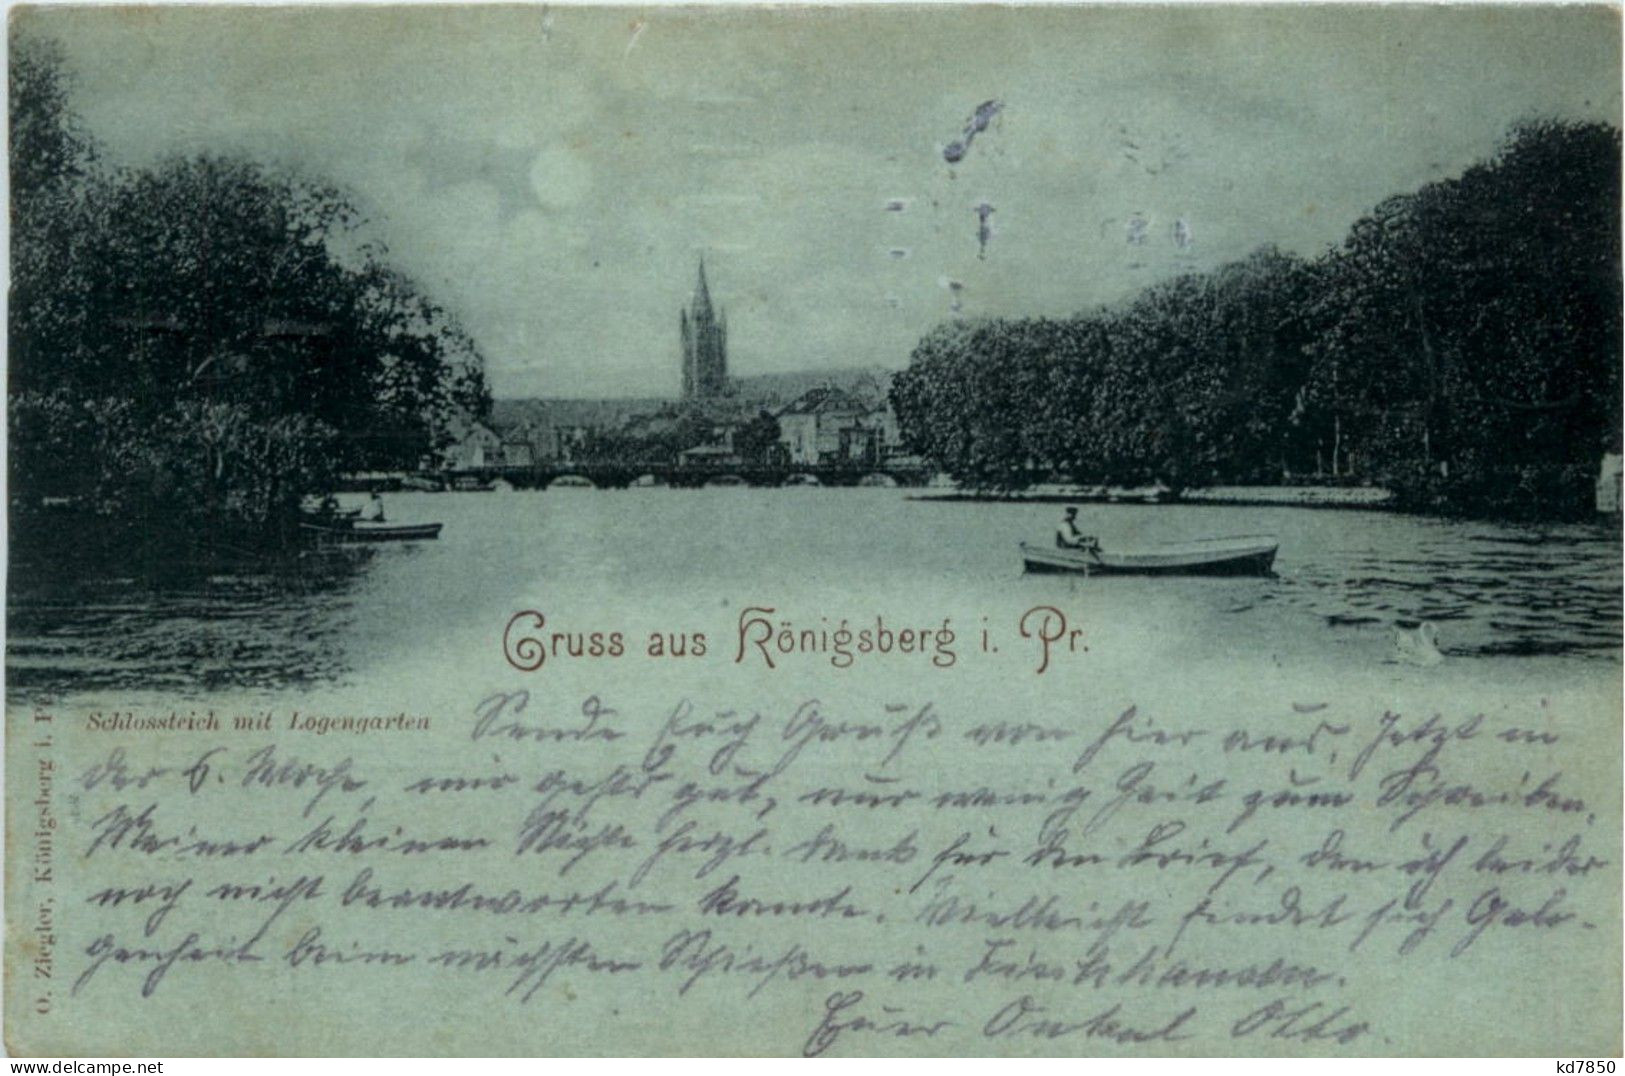 Gruss aus Königsberg i. Pr.
Schlossteich mit Logengarten
Sende Euch Gruß von hier aus. Jetzt in
der 6. Woche, mir gehts gut, nur wenig Zeit zum Schreiben.
Meiner kleinen Nichte herzl. Dank für den Brief, den ich leider
noch nicht beantworten konnte. Vielleicht findet sich Gele-
genheit beim nächsten Schießen in
Euer Onkel Otto.
O. Ziegler, Königsberg i. Pr
kd7850